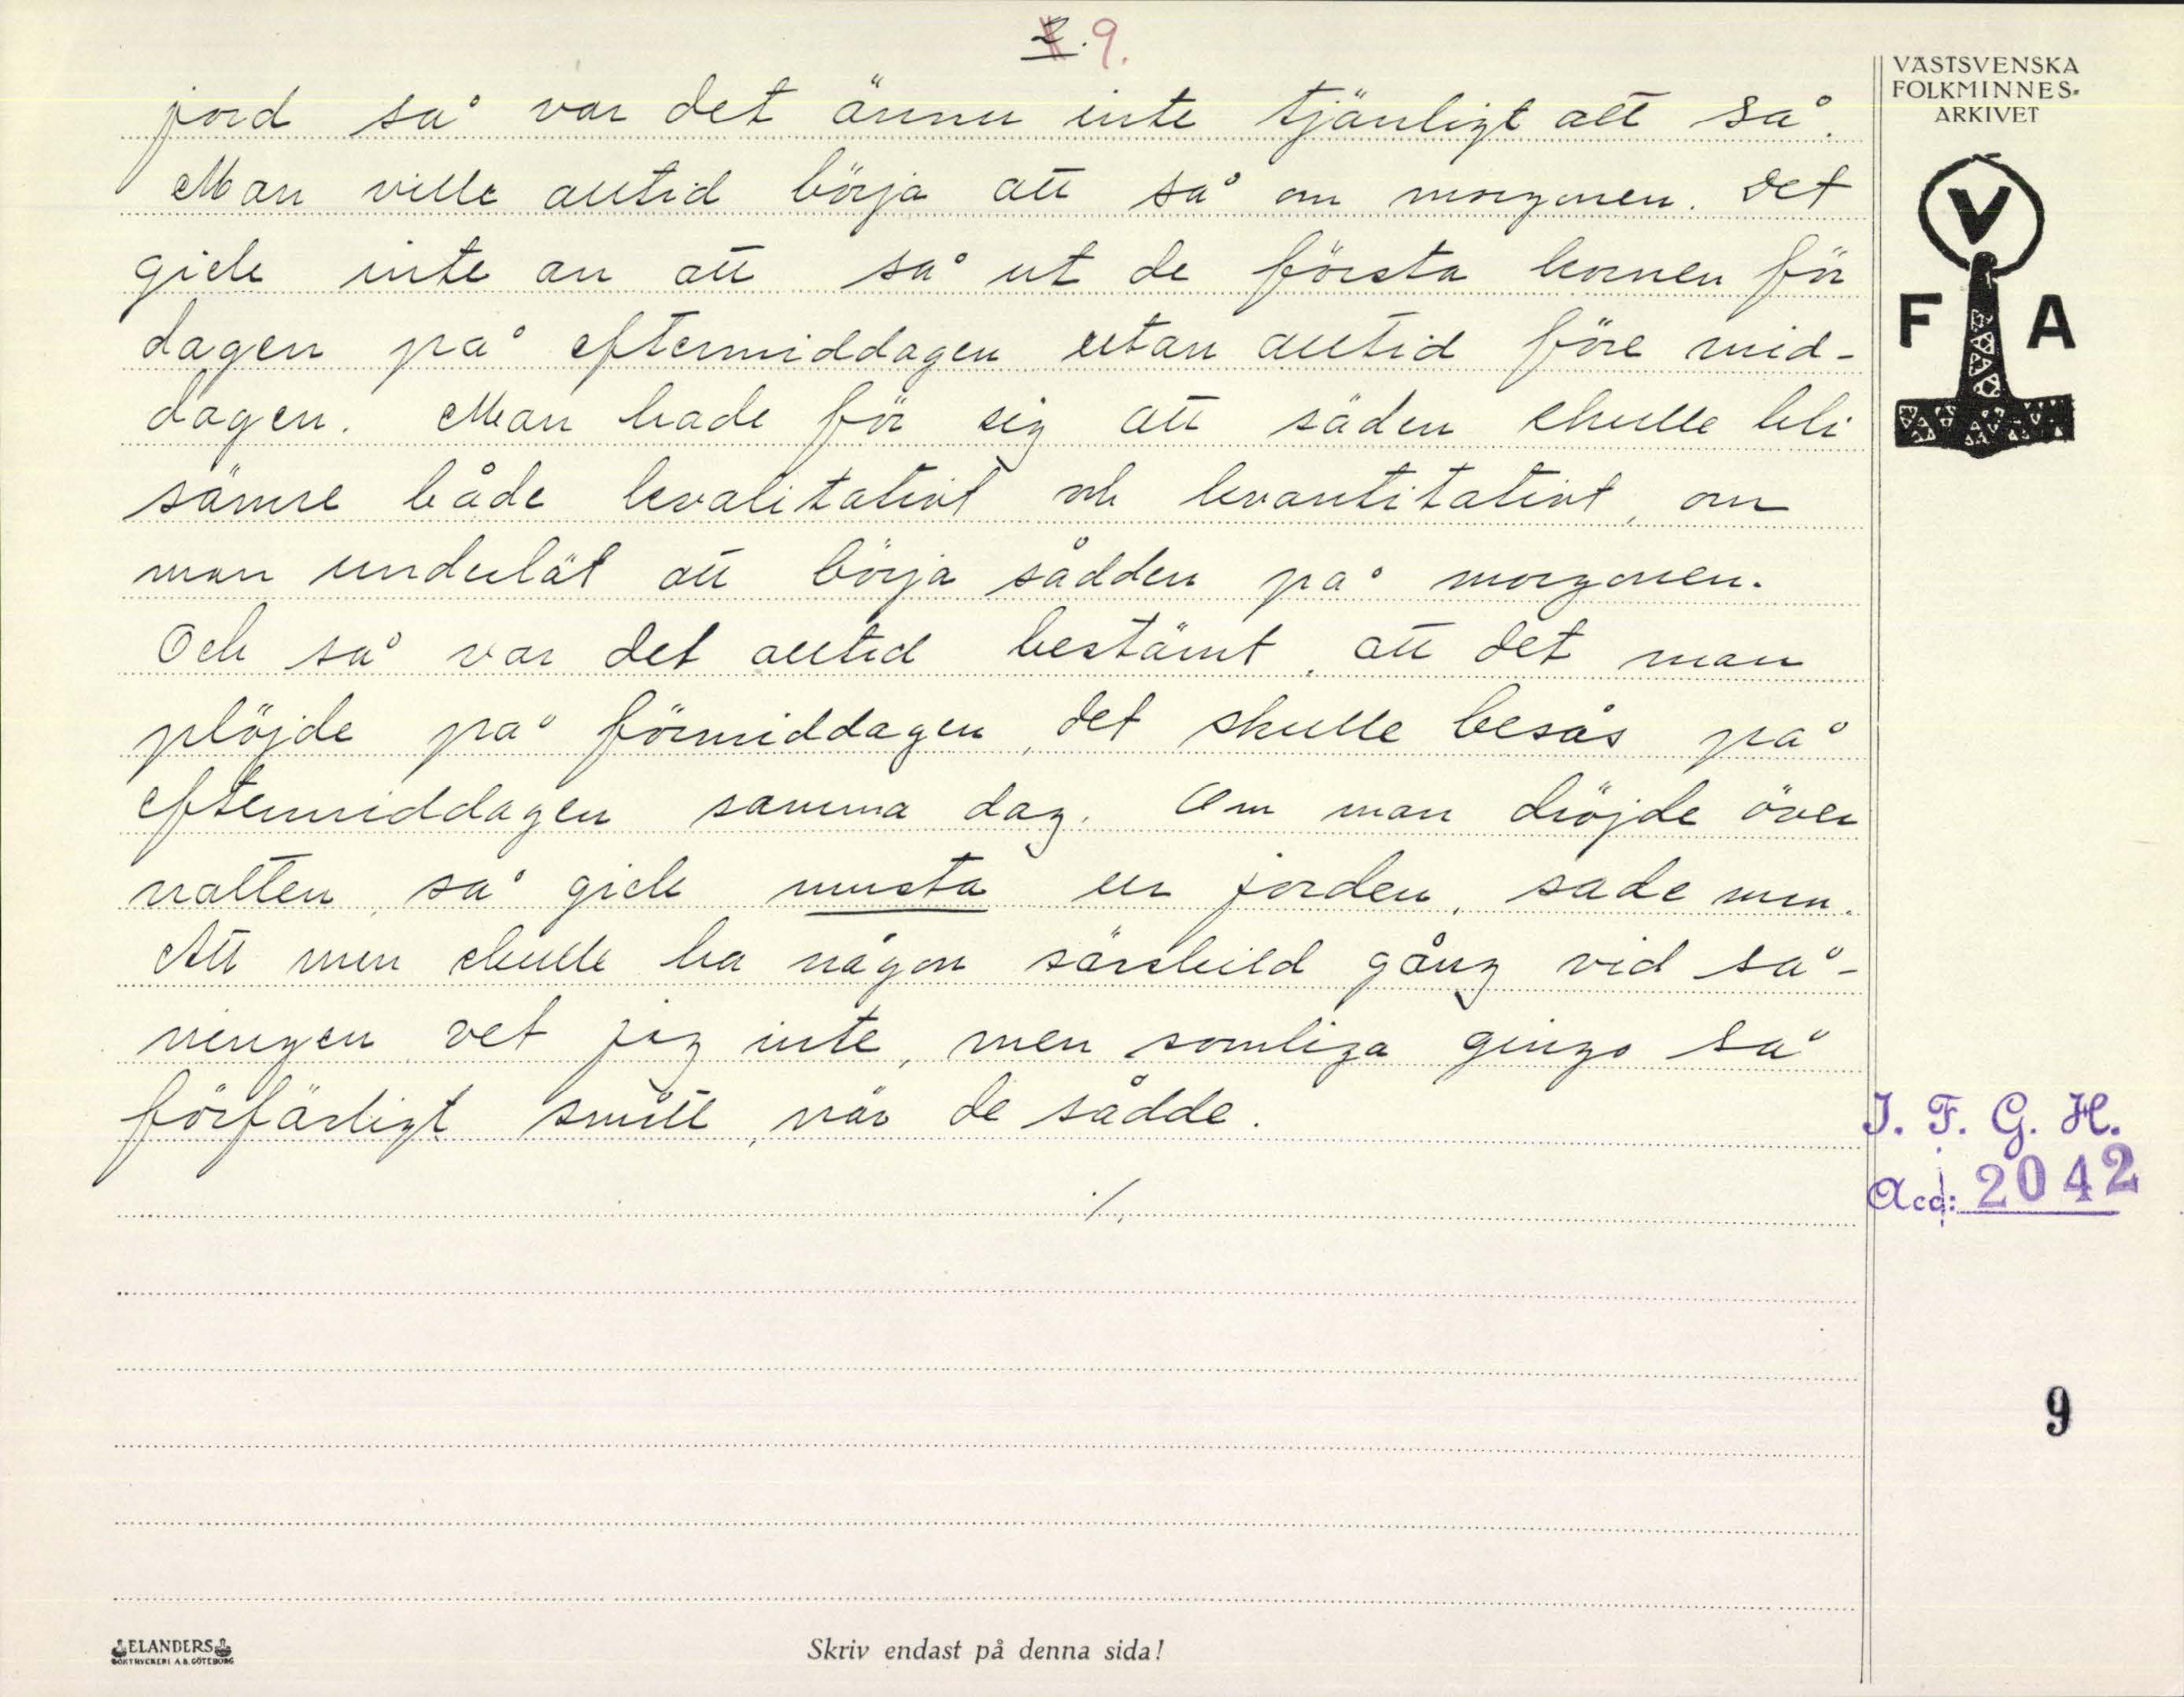 2. 9.
jord så var det ännu inte tjänligt att så.
Man ville alltid börja att så om morgonen. Det
gick inte an att så ut de första kornen för
dagen på eftermiddagen utan alltid före mid-
dagen. Man hade för sig att säden skulle bli
sämre både kvalitativt och kvantitativt, om
man underlät att börja sådden på morgonen.
Och så var det alltid bestämt, att det man
plöjde på förmiddagen, det skulle besås på
eftermiddagen samma dag. Om man dröjde över
natten, så gick musta ur jorden, sade man.
Att man skulle ha någon särskild gång vid så-
ningen vet jag inte, men somliga gingo så
förfärligt smått, när de sådde.
./.
VÄSTSVENSKA
FOLKMINNES-
ARKIVET
V
F A
I. F. G. H.
Acc: 2042
9
ELANDERS
BOKTRYCKERI A.B. GÖTEBORG
Skriv endast på denna sida!